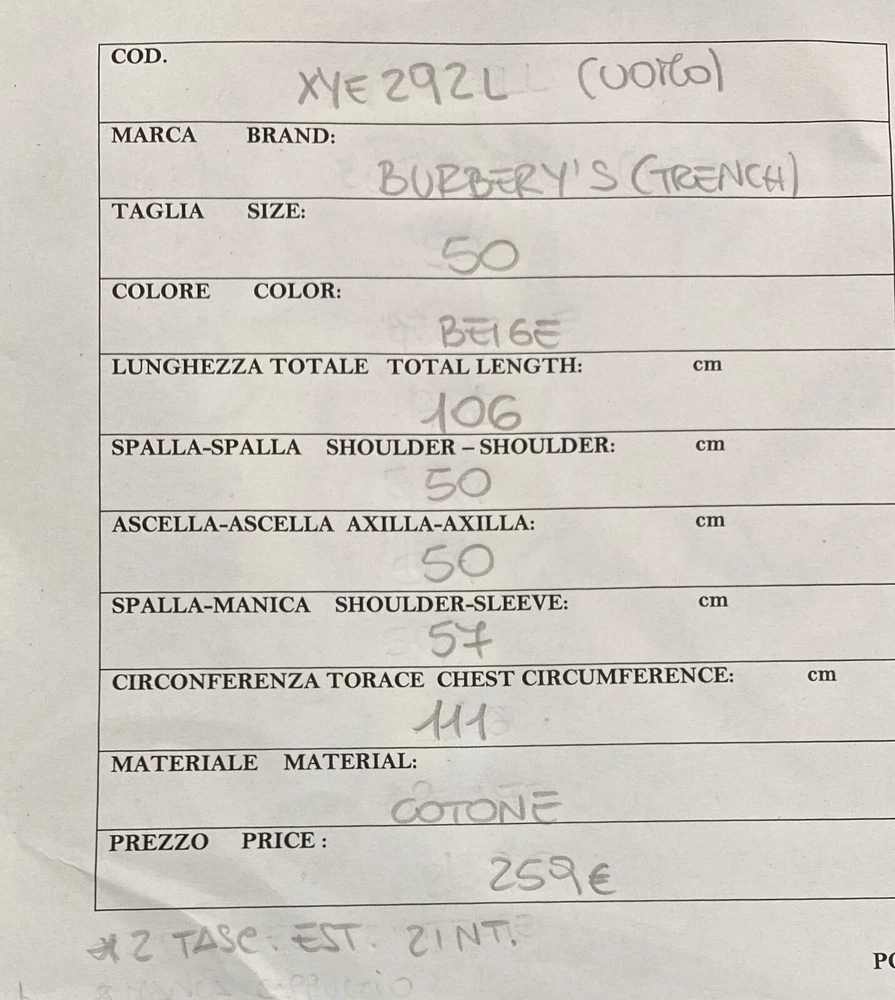 COD.
XYE292L (UOMO)
MARCA BRAND:
BURBERY'S (TRENCH)
TAGLIA SIZE:
50
COLORE COLOR:
BEIGE
LUNGHEZZA TOTALE TOTAL LENGTH: cm
106
SPALLA-SPALLA SHOULDER – SHOULDER: cm
50
ASCELLA-ASCELLA AXILLA-AXILLA: cm
50
SPALLA-MANICA SHOULDER-SLEEVE: cm
57
CIRCONFERENZA TORACE CHEST CIRCUMFERENCE: cm
111
MATERIALE MATERIAL:
COTONE
PREZZO PRICE :
259€
*2 TASC. EST. 2INT.